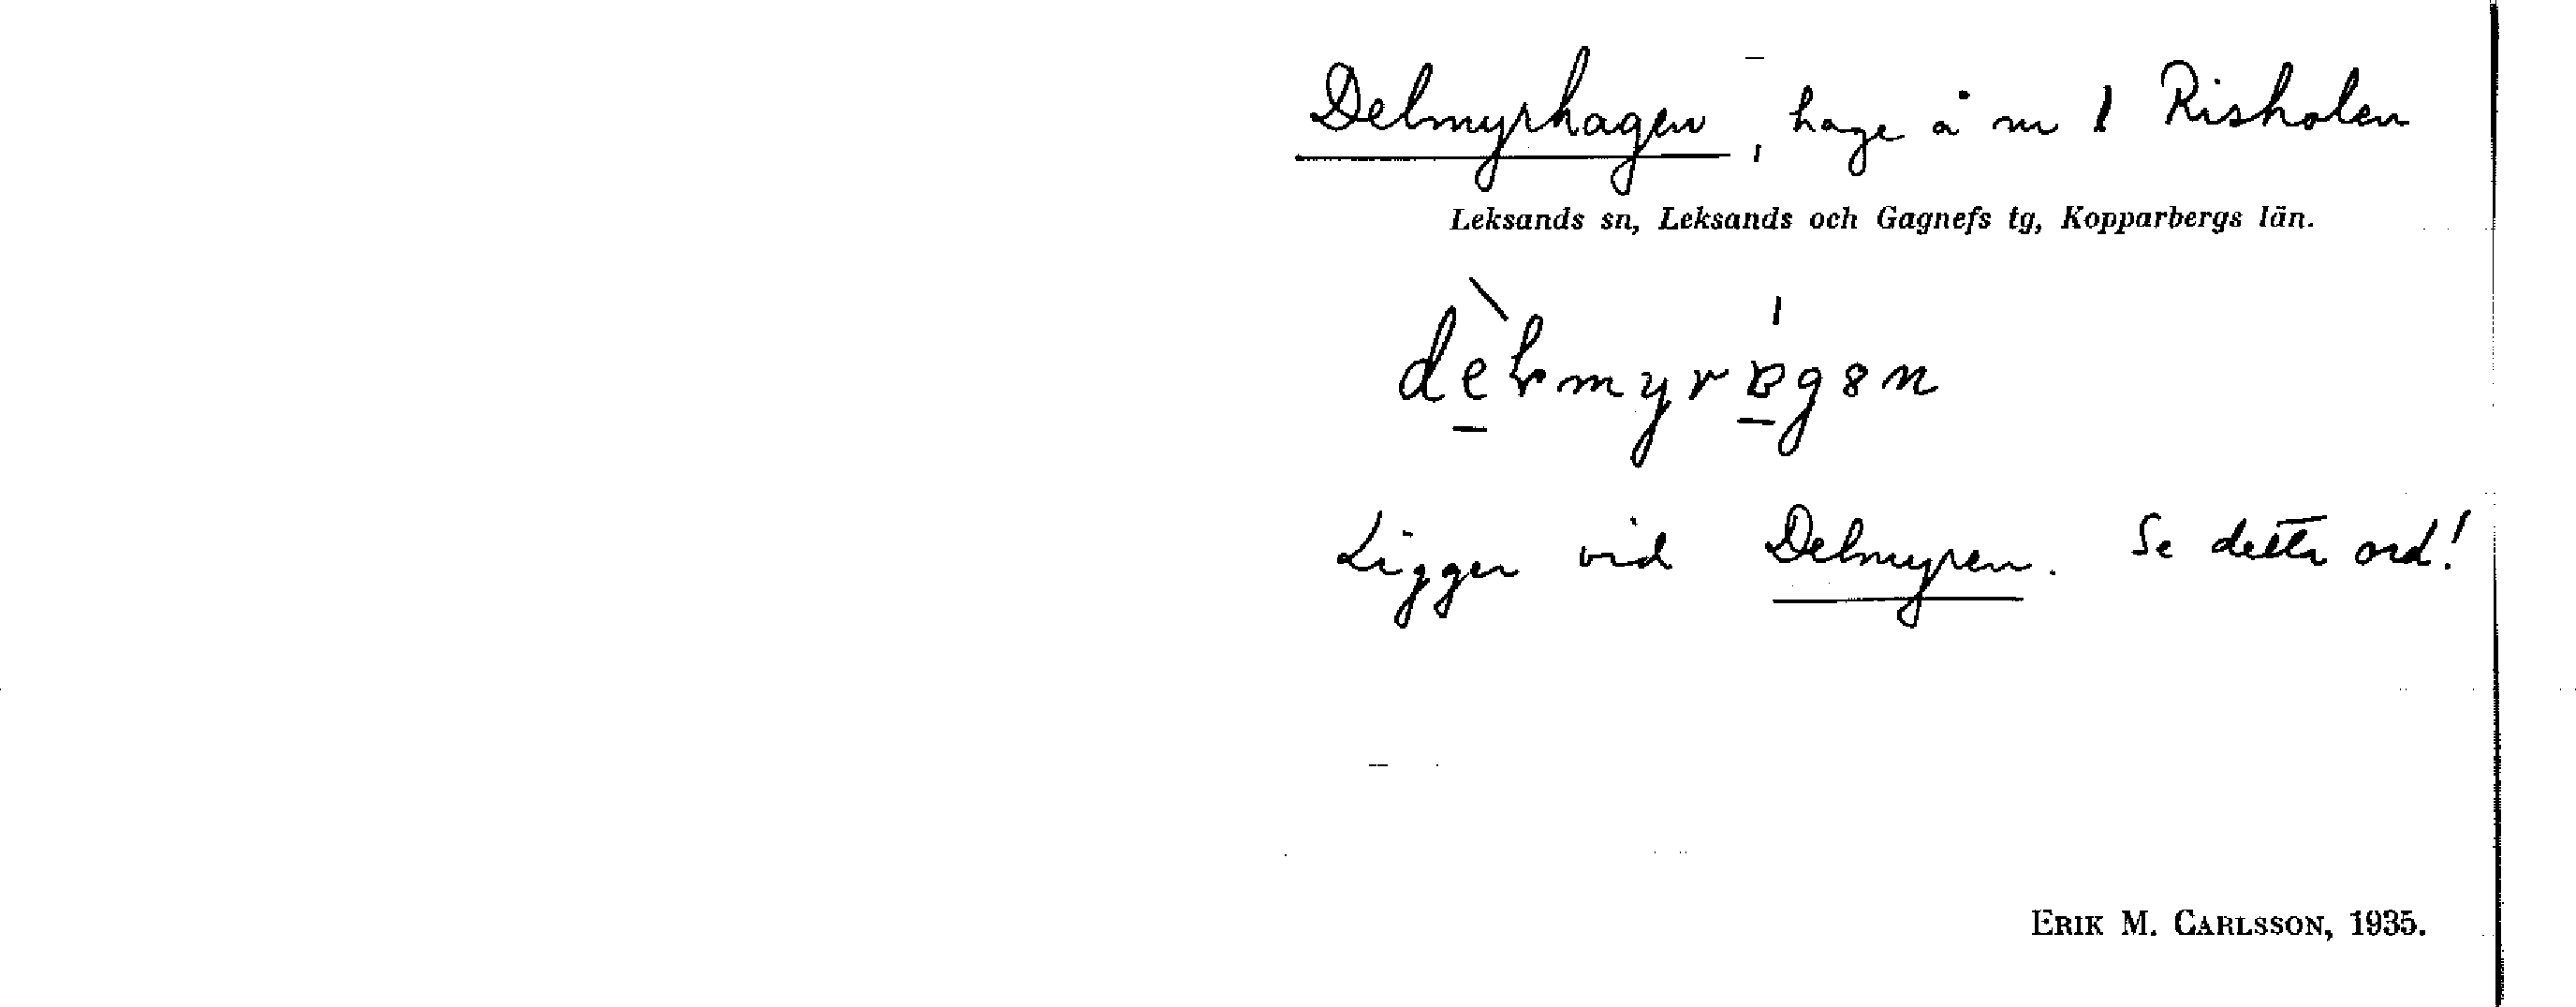 Delmyrhagen, hage å nr 1 Risholen
Leksands sn, Leksands och Gagnefs tg, Kopparbergs län.
Ligger vid Delmyren. Se detta ord!
ERIK M. CARLSSON, 1935.